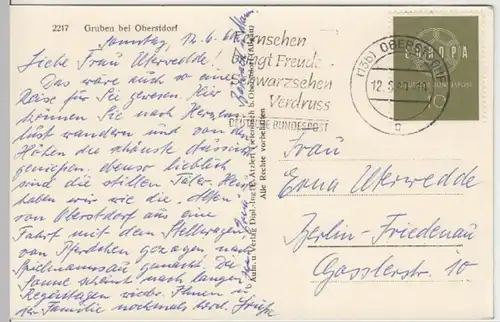 2217 Gruben bei Oberstdorf
Samstag, 12.6.60
Liebe Frau Uterwedde!
Das wäre auch so eine
Reise für Sie gewesen. Hier
können Sie nach Herzens-
lust wandern und von den
Höhen die schönste Aussicht
genießen, ebenso lieblich
sind die stillen Täler. Heute
haben wir wie die „Alten"
von Oberstdorf aus eine
Fahrt mit dem Stellwagen
von Pferdchen gezogen nach
Spielmannsau gemacht. Die
Sonne scheint nach langen
Regentagen wieder. Ihnen u.
der Familie nochmals herzl. Grüße
Alle Rechte vorbehalten
Fernsehen
bringt Freude
Schwarzsehen
Verdruss
DEUTSCHE BUNDESPOST
(13b) OBERSTDORF
EUROPA
DEUTSCHE BUNDESPOST
10
Frau
Erna Uterwedde
Berlin-Friedenau
Gosslerstr. 10